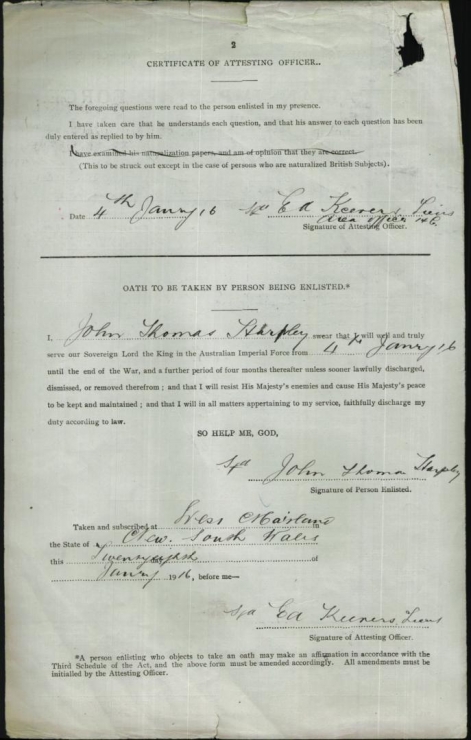 2
CERTIFICATE OF ATTESTING OFFICER..
The foregoing questions were read to the person enlisted in my presence.
I have taken care that he understands each question, and that his answer to each question has been
duly entered as replied to by him.
I have examined his naturalization papers, and am of opinion that they are correct.
(This to be struck out except in the case of persons who are naturalized British Subjects).
Date 4th Janry 16 Sgd E A Keevers Lieut
Area Officer
Signature of Attesting Officer.
OATH TO BE TAKEN BY PERSON BEING ENLISTED.*
I, John Thomas Sharpley swear that I will well and truly
serve our Sovereign Lord the King in the Australian Imperial Force from 4th Janry 16
until the end of the War, and a further period of four months thereafter unless sooner lawfully discharged,
dismissed, or removed therefrom ; and that I will resist His Majesty's enemies and cause His Majesty's peace
to be kept and maintained ; and that I will in all matters appertaining to my service, faithfully discharge my
duty according to law.
SO HELP ME, GOD,
Sgd John Thomas Sharpley
Signature of Person Enlisted.
Taken and subscribed at West Maitland in
the State of New South Wales
this of
Janry 1916, before me—
Sgd E A Keevers Lieut
Signature of Attesting Officer.
*A person enlisting who objects to take an oath may make an affirmation in accordance with the
Third Schedule of the Act, and the above form must be amended accordingly. All amendments must be
initialled by the Attesting Officer.